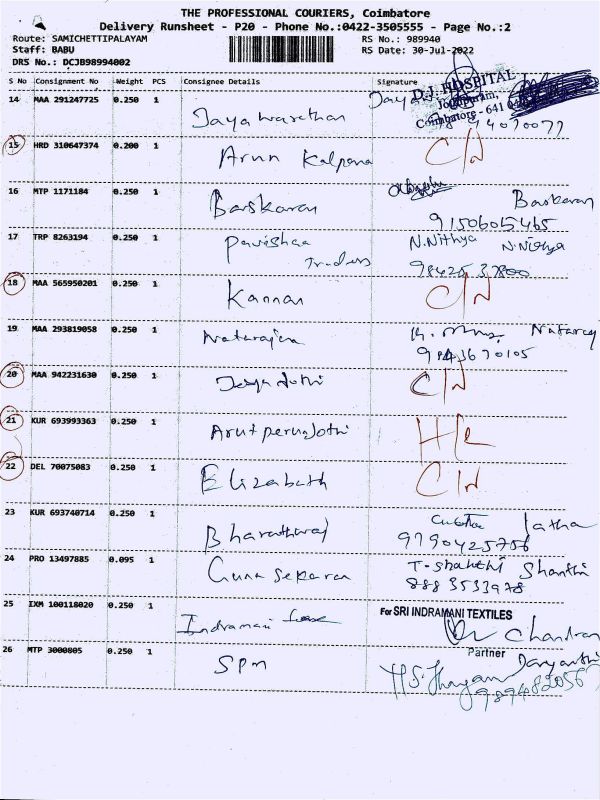 THE PROFESSIONAL COURIERS, Coimbatore
Delivery Runsheet - P20 - Phone No.:0422-3505555 - Page No.:2
Route: SAMICHETTIPALAYAM RS No.: 989940
Staff: BABU RS Date: 30-Jul-2022
DRS No.: DCJB98994002
S No Consignment No Weight PCS Consignee Details Signature
D.J. HOSPITAL
14 MAA 291247725 0.250 1
Coimbatore - 641
15 HRD 310647374 0.200 1 Arun Kalpana C/N
16 MTP 1171184 0.250 1 Baskaran Baskaran
9150605465
17 TRP 8263194 0.250 1 Pavishaa Traders N.Nithya N.Nithya
18 MAA 565950201 0.250 1 Kannan C/N
19 MAA 293819058 0.250 1 Natarajan
9843670105
20 MAA 942231630 0.250 1 C/N
21 KUR 693993363 0.250 1 Arutperunjothi
22 DEL 70075083 0.250 1 Elizabath C/N
23 KUR 693740714 0.250 1 Bharathwaj latha
9790425756
24 PRO 13497885 0.095 1 Guna Sekaran T-Shakthi Shanthi
8883533978
25 IXM 100118020 0.250 1 Indramani For SRI INDRAMANI TEXTILES
Chandran
Partner
26 MTP 3000805 0.250 1 SPM
9894482056